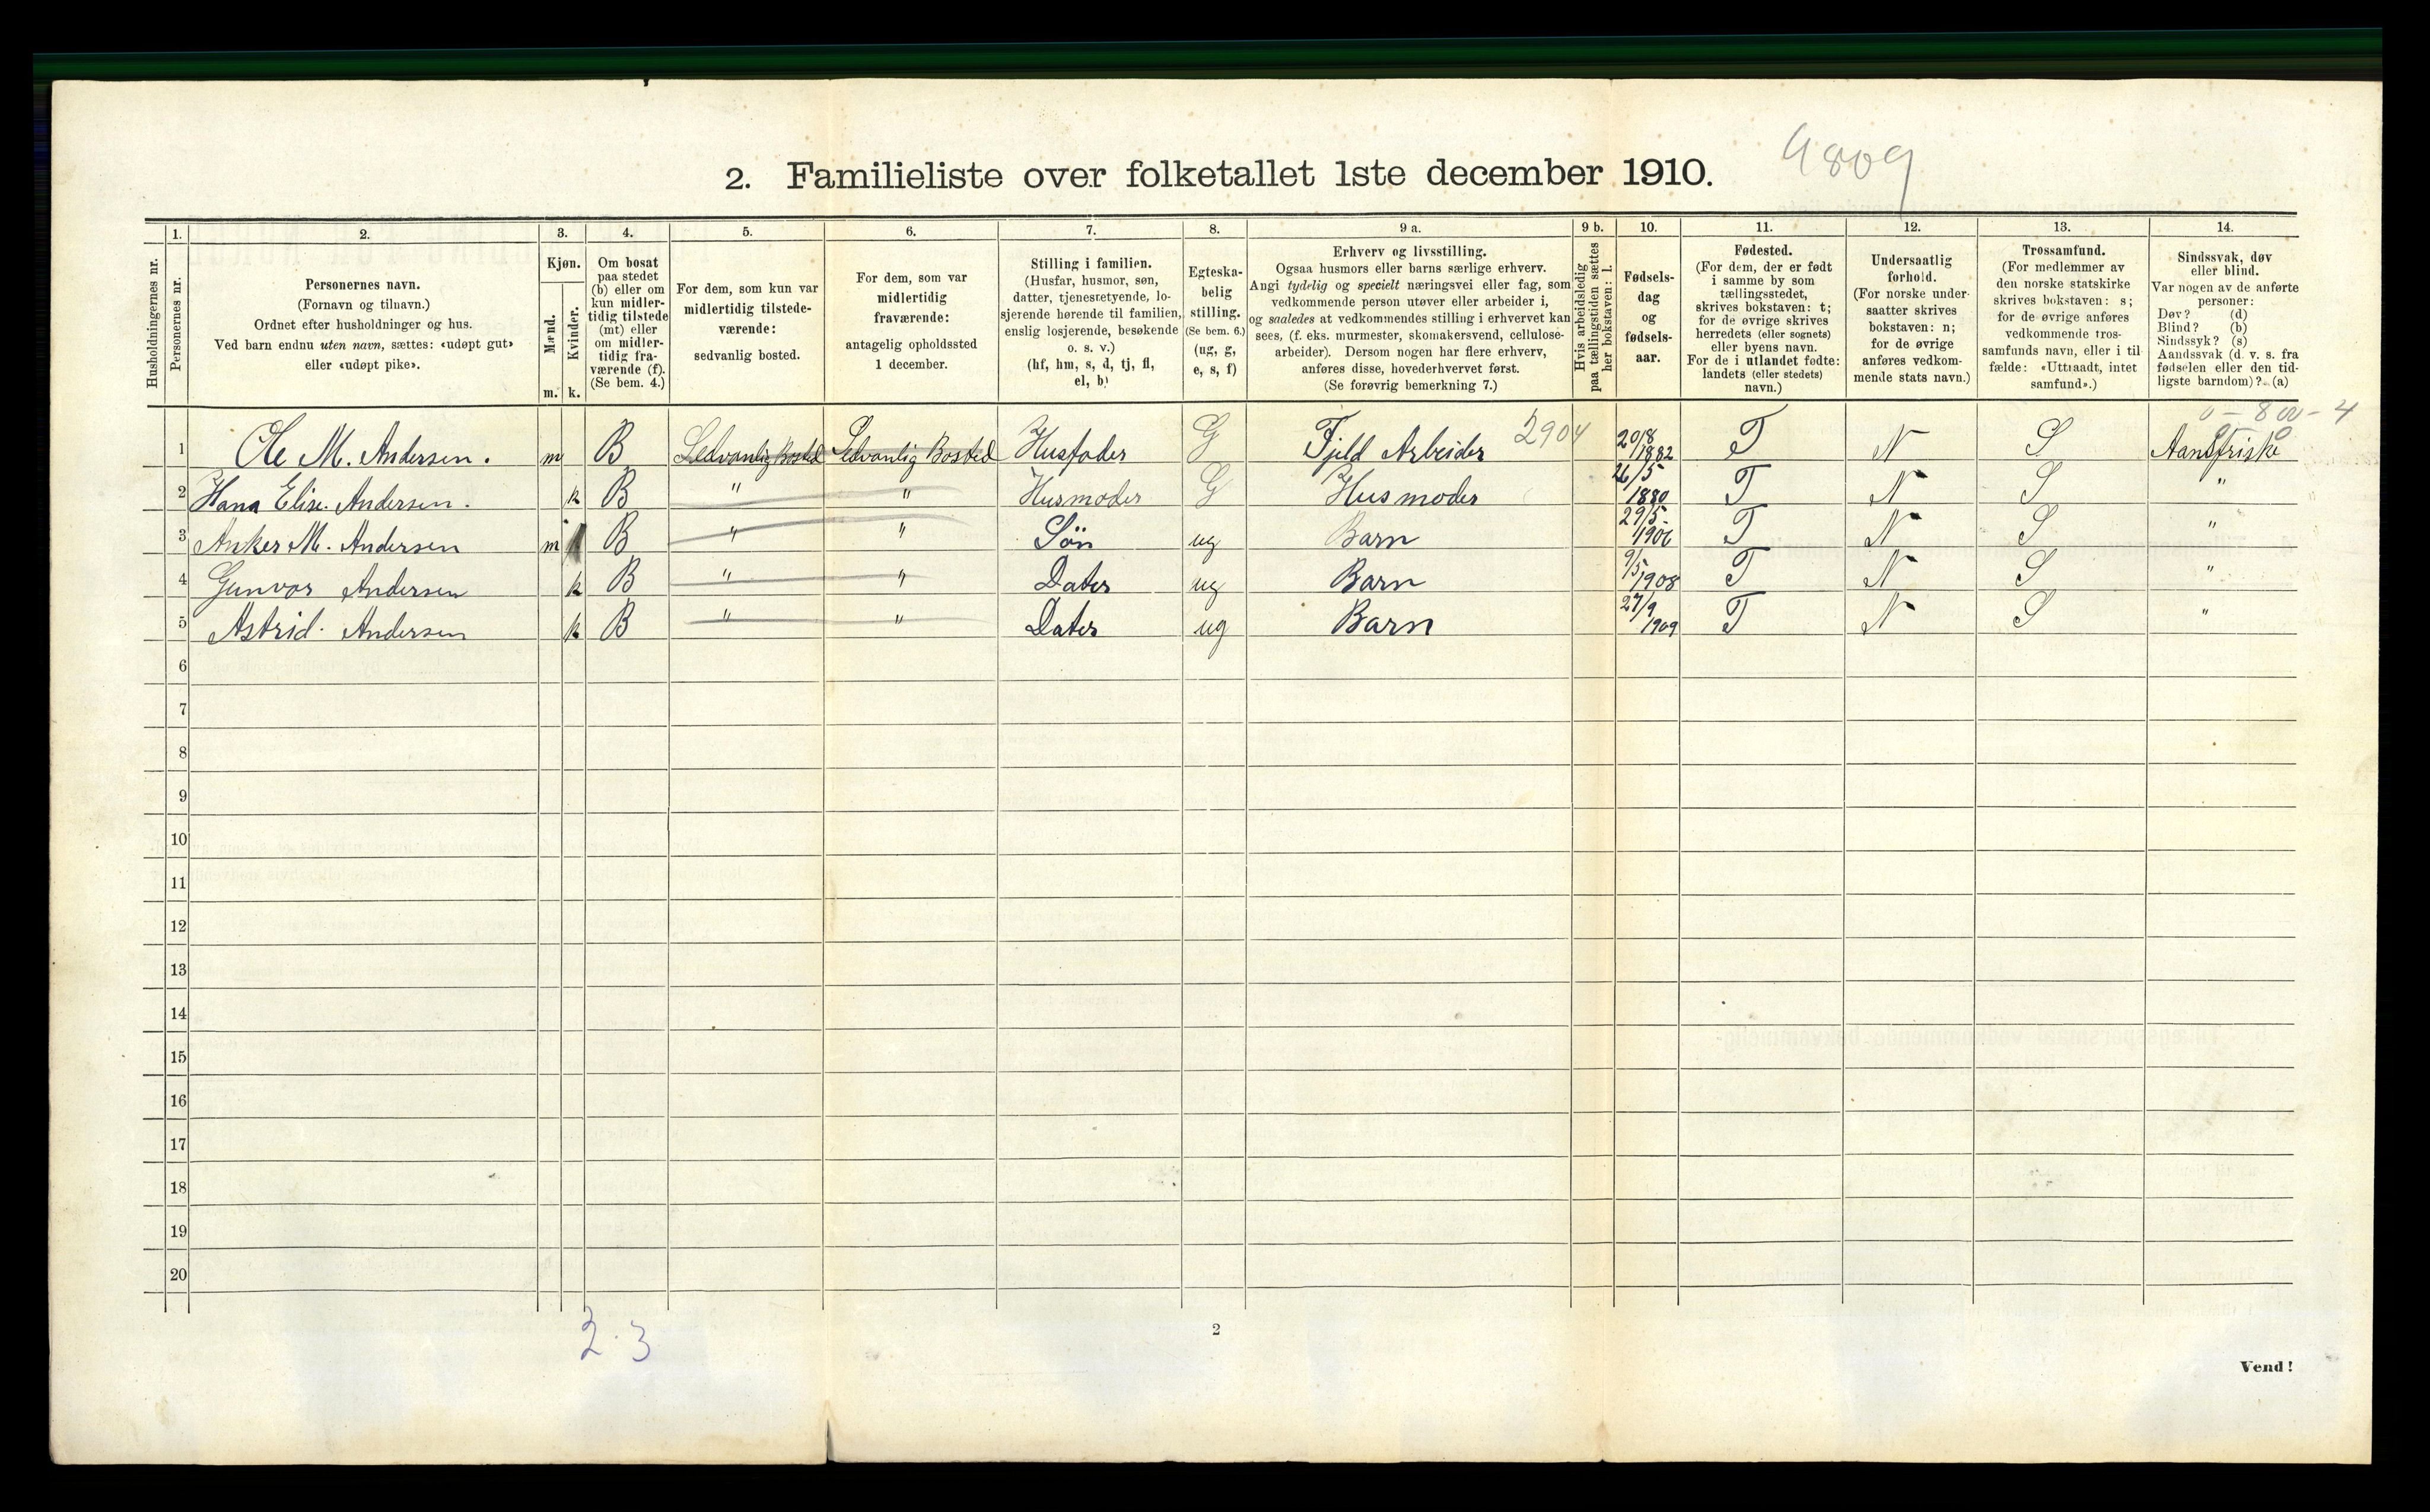 9809
2. Familieliste over folketallet 1ste december 1910.
1. 2. 3. 4. 5. 6. 7. 8. 9 a. 9 b. 10. 11. 12. 13. 14.
Husholdningernes nr.
Personernes nr.
Personernes navn.
(Fornavn og tilnavn.)
Ordnet efter husholdninger og hus.
Ved barn endnu uten navn, sættes: «udøpt gut»
eller «udøpt pike».
Kjøn.
Mænd.
Kvinder.
m. k.
Om bosat
paa stedet
(b) eller om
kun midler-
tidig tilstede
(mt) eller
om midler-
tidig fra-
værende (f).
(Se bem. 4.)
For dem, som kun var
midlertidig tilstede-
værende:
sedvanlig bosted.
For dem, som var
midlertidig
fraværende:
antagelig opholdssted
1 december.
Stilling i familien.
(Husfar, husmor, søn,
datter, tjenestetyende, lo-
sjerende hørende til familien,
enslig losjerende, besøkende
o. s. v.)
(hf, hm, s, d, tj, fl,
el, b)
Egteska-
belig
stilling.
(Se bem. 6.)
(ug, g,
e, s, f)
Erhverv og livsstilling.
Ogsaa husmors eller barns særlige erhverv.
Angi tydelig og specielt næringsvei eller fag, som
vedkommende person utøver eller arbeider i,
og saaledes at vedkommendes stilling i erhvervet kan
sees, (f. eks. murmester, skomakersvend, cellulose-
arbeider). Dersom nogen har flere erhverv,
anføres disse, hovederhvervet først.
(Se forøvrig bemerkning 7.)
Hvis arbeidsledig
paa tællingstiden sættes
her bokstaven: l.
Fødsels-
dag
og
fødsels-
aar.
Fødested.
(For dem, der er født
i samme by som
tællingsstedet,
skrives bokstaven: t;
for de øvrige skrives
herredets (eller sognets)
eller byens navn.
For de i utlandet fødte:
landets (eller stedets)
navn.)
Undersaatlig
forhold.
(For norske under-
saatter skrives
bokstaven: n;
for de øvrige
anføres vedkom-
mende stats navn.)
Trossamfund.
(For medlemmer av
den norske statskirke
skrives bokstaven: s;
for de øvrige anføres
vedkommende tros-
samfunds navn, eller i til-
fælde: «Uttraadt, intet
samfund».)
Sindssvak, døv
eller blind.
Var nogen av de anførte
personer:
Døv? (d)
Blind? (b)
Sindssyk? (s)
Aandssvak (d. v. s. fra
fødselen eller den tid-
ligste barndom)? (a)
1 Ole M. Andersen. m B Sedvanlig Bosted Sedvanlig Bosted Husfader G Fjeld Arbeider 2904 20/8 1882 T N S Aandfriske
2 Hana Elise Andersen. k B " " Husmoder G Husmoder 26/5 1880 T N S "
3 Anker M. Andersen m B " " Søn ug Barn 29/5 1906 T N S "
4 Gunvor Andersen k B " " Dater ug Barn 9/5 1908 T N S "
5 Astrid Andersen k B " " Dater ug Barn 27/9 1909 T N S "
6
7
8
9
10
11
12
13
14
15
16
17
18
19
20
2.3
2
Vend!